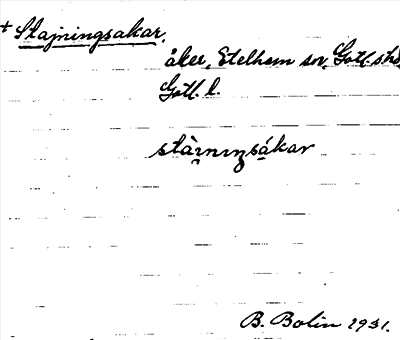 + Stajningsakar.
åker, Etelhem sn, Gotl. s. hd,
Gotl. l.
stàinıŋsákar
B. Bolin 1931.